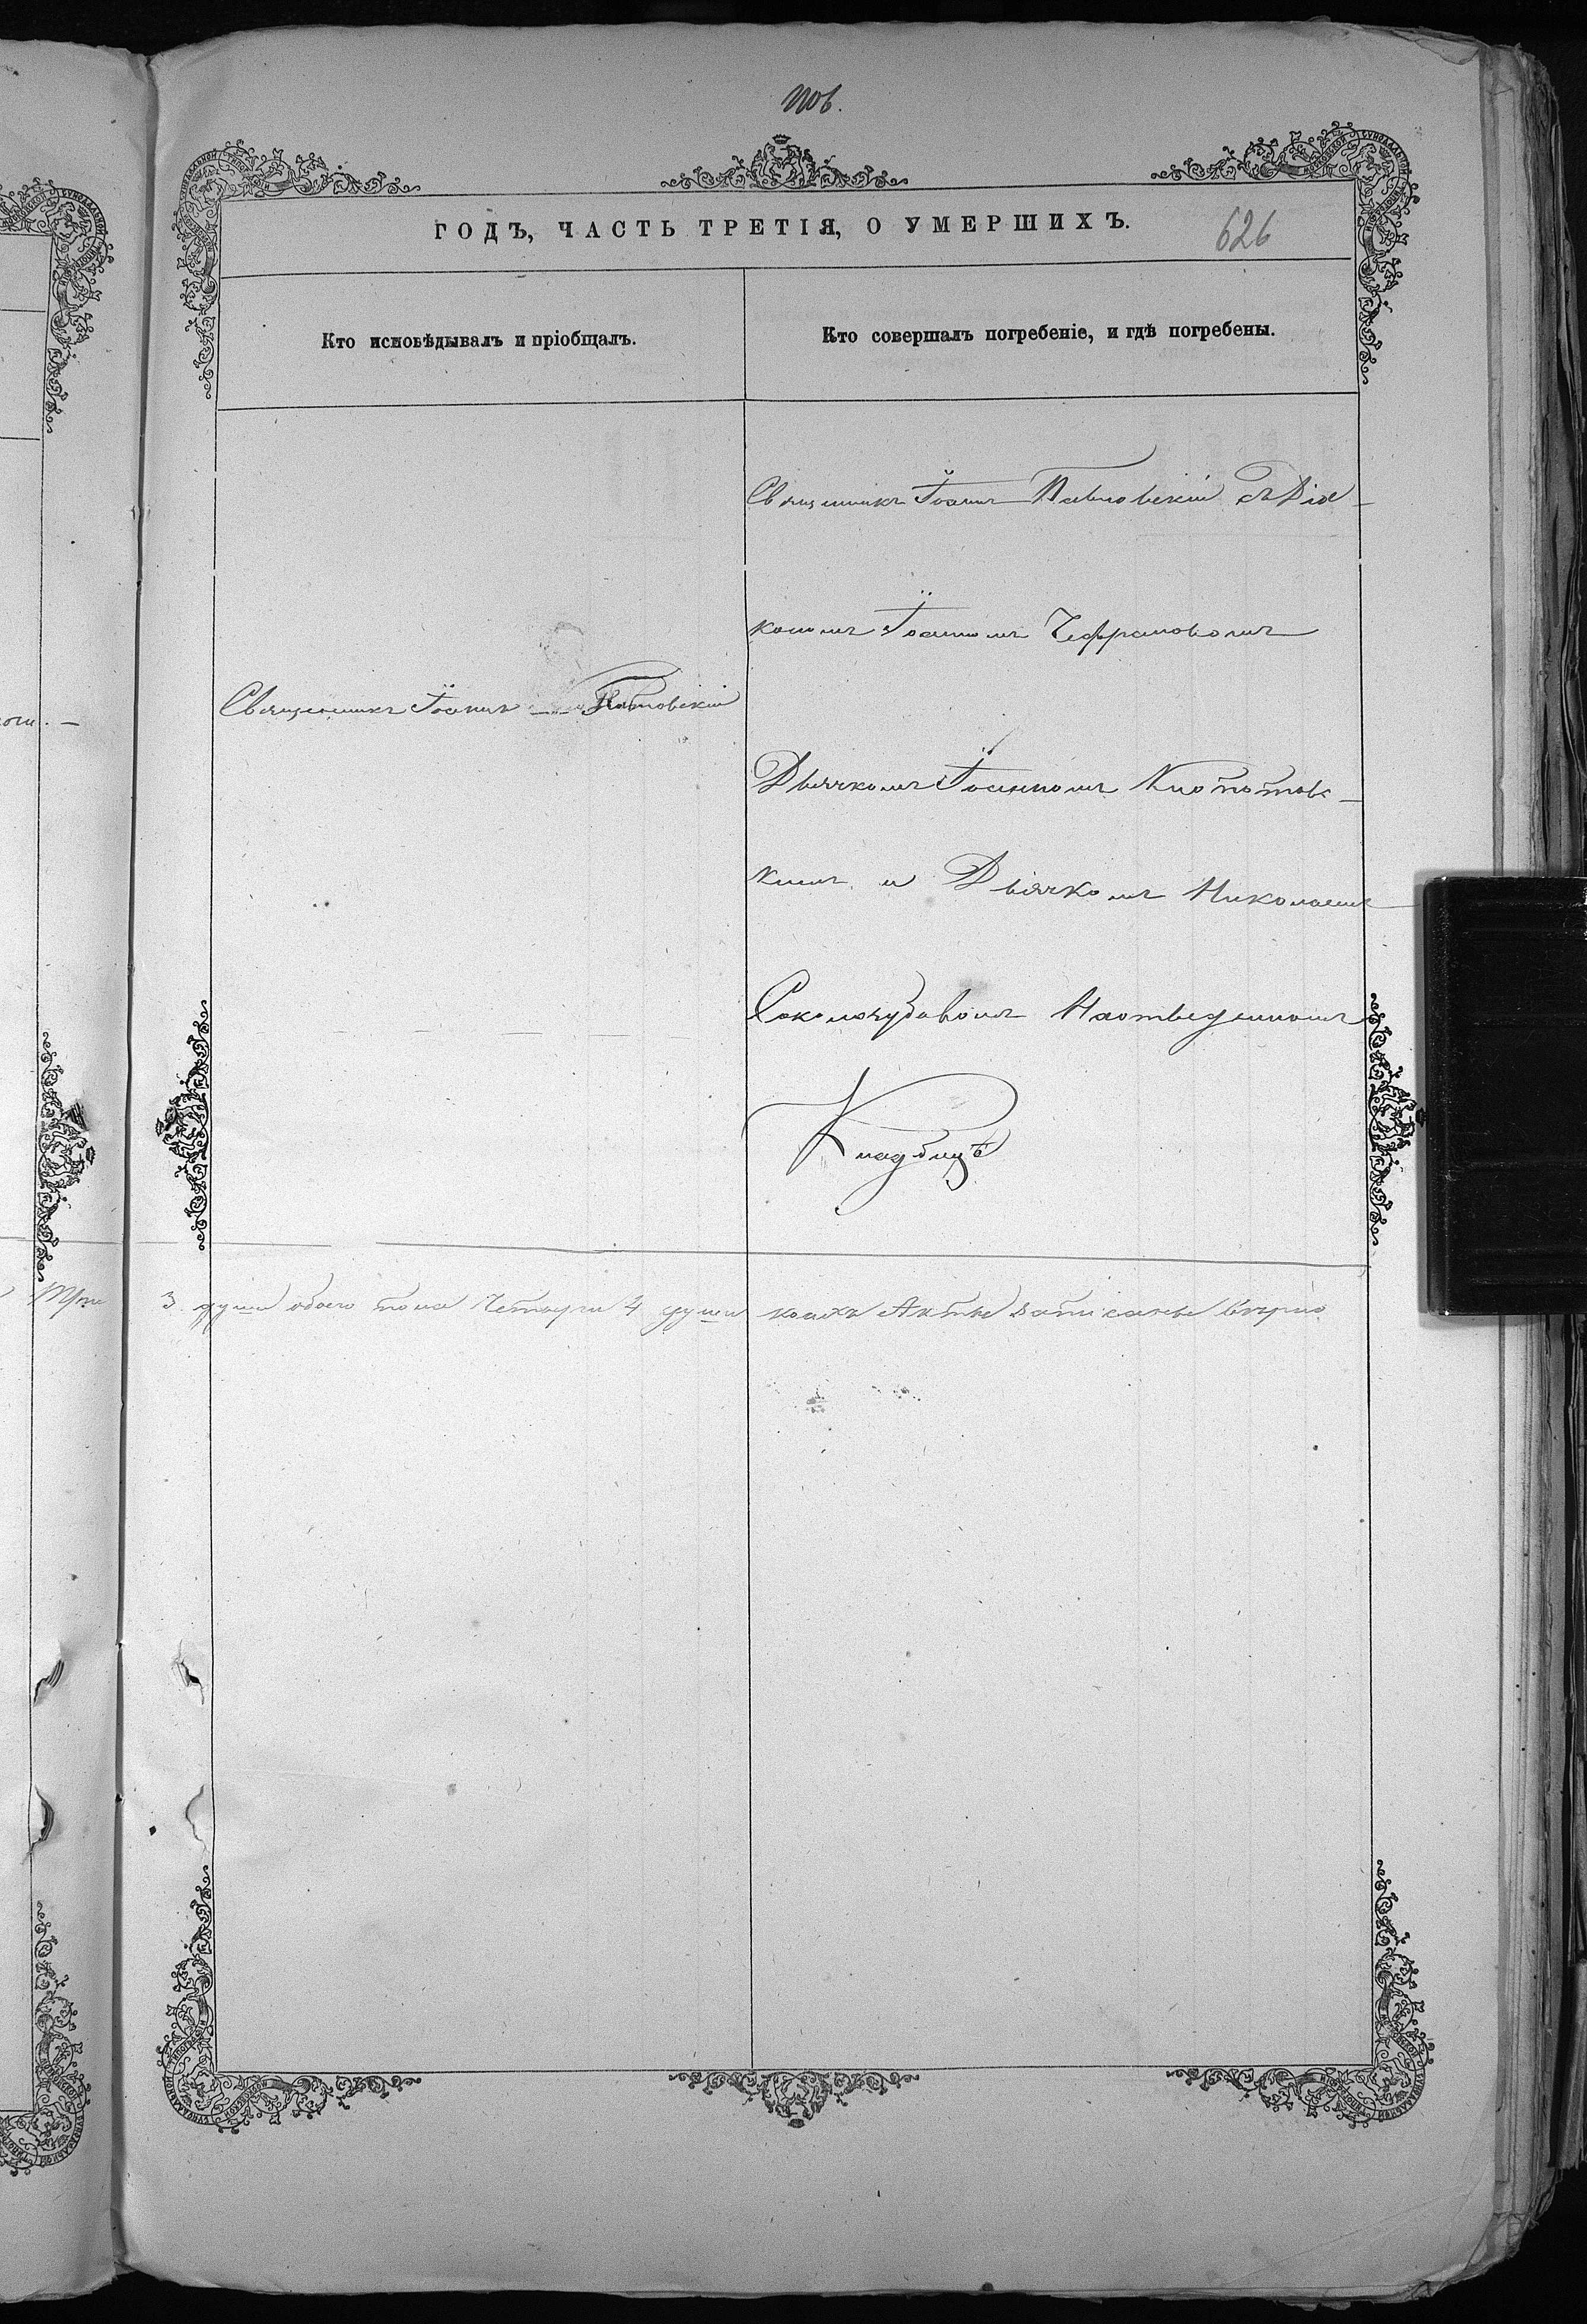 ГОДЪ, ЧАСТЬ ТРЕТІЯ, О УМЕРШИХЪ.
626
Кто исповѣдывалъ и пріобщалъ.
Кто совершалъ погребеніе, и гдѣ погребены.
Священникъ Іоаннъ Павловскій
Священникъ Іоаннъ Павловскій съ Діа-
кономъ Іоанномъ Чефрановомъ
Дьячкомъ Іоанномъ
кимъ и Дьячкомъ Николаемъ
На отведенномъ
Кладбищѣ
Три 3 души обоего пола Четыри 4 души коихъ Акты записаны вѣрно